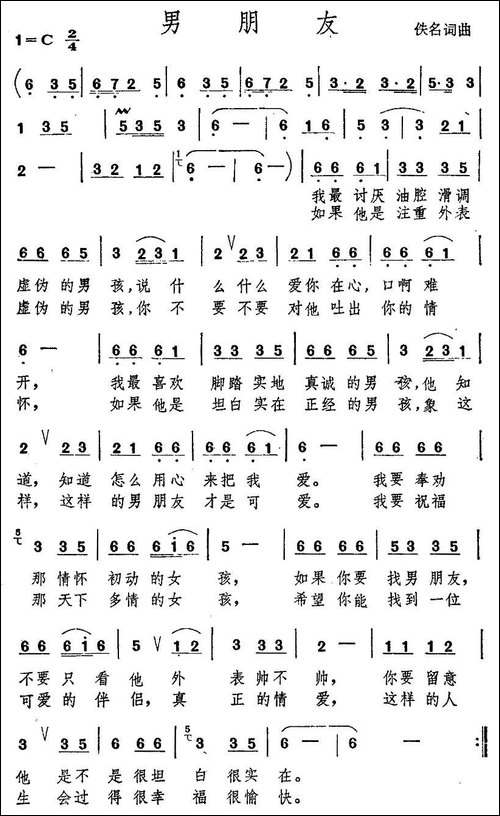 男朋友
1=C 2/4
佚名词曲
(6 35 | 672 5 | 35 35 | 672 5 | 3·2 3·2 | 5·3 3 |
1 35 | 535 3 | 6 — | 6 16 | 5 3 | 3 21 |
2 — | 32 12 | 6 — | 6 — ) | 66 61 | 33 35 |
我最 讨厌 油腔 滑调
如果 他是 注重 外表
66 65 | 3 231 | 2 ∨ 23 | 21 66 | 66 61 |
虚伪 的男 孩,说 什 么 什么 爱你 在心, 口啊 难
虚伪 的男 孩,你 不 要 不要 对他 吐出 你的 情
6 — | 66 61 | 33 35 | 66 65 | 3 231 |
开, 我最 喜欢 脚踏 实地 真诚 的男 孩,他 知
怀, 如果 他是 坦白 实在 正经 的男 孩,象 这
2 ∨ 23 | 21 66 | 66 61 | 6 — | 66 66 |
道, 知道 怎么 用心 来把 我 爱。 我要 奉劝
样, 这样 的男 朋友 才是 可 爱。 我要 祝福
3 35 | 66 6i6 | 5 — | 66 66 | 55 35 |
那 情怀 初动 的女 孩, 如果 你要 找男 朋友,
那 天下 多情 的女 孩, 希望 你能 找到 一位
66 6i6 | 5 ∨ 12 | 3 33 | 2 — | 11 12 |
不要 只看 他 外 表 帅不 帅, 你要 留意
可爱 的伴 侣,真 正 的情 爱, 这样 的人
3 ∨ 33 | 22 35 | 3 35 | 6 — | 6 — :‖
他 是不 是很 坦 白 很实 在。
生 会过 得很 幸 福 很愉 快。